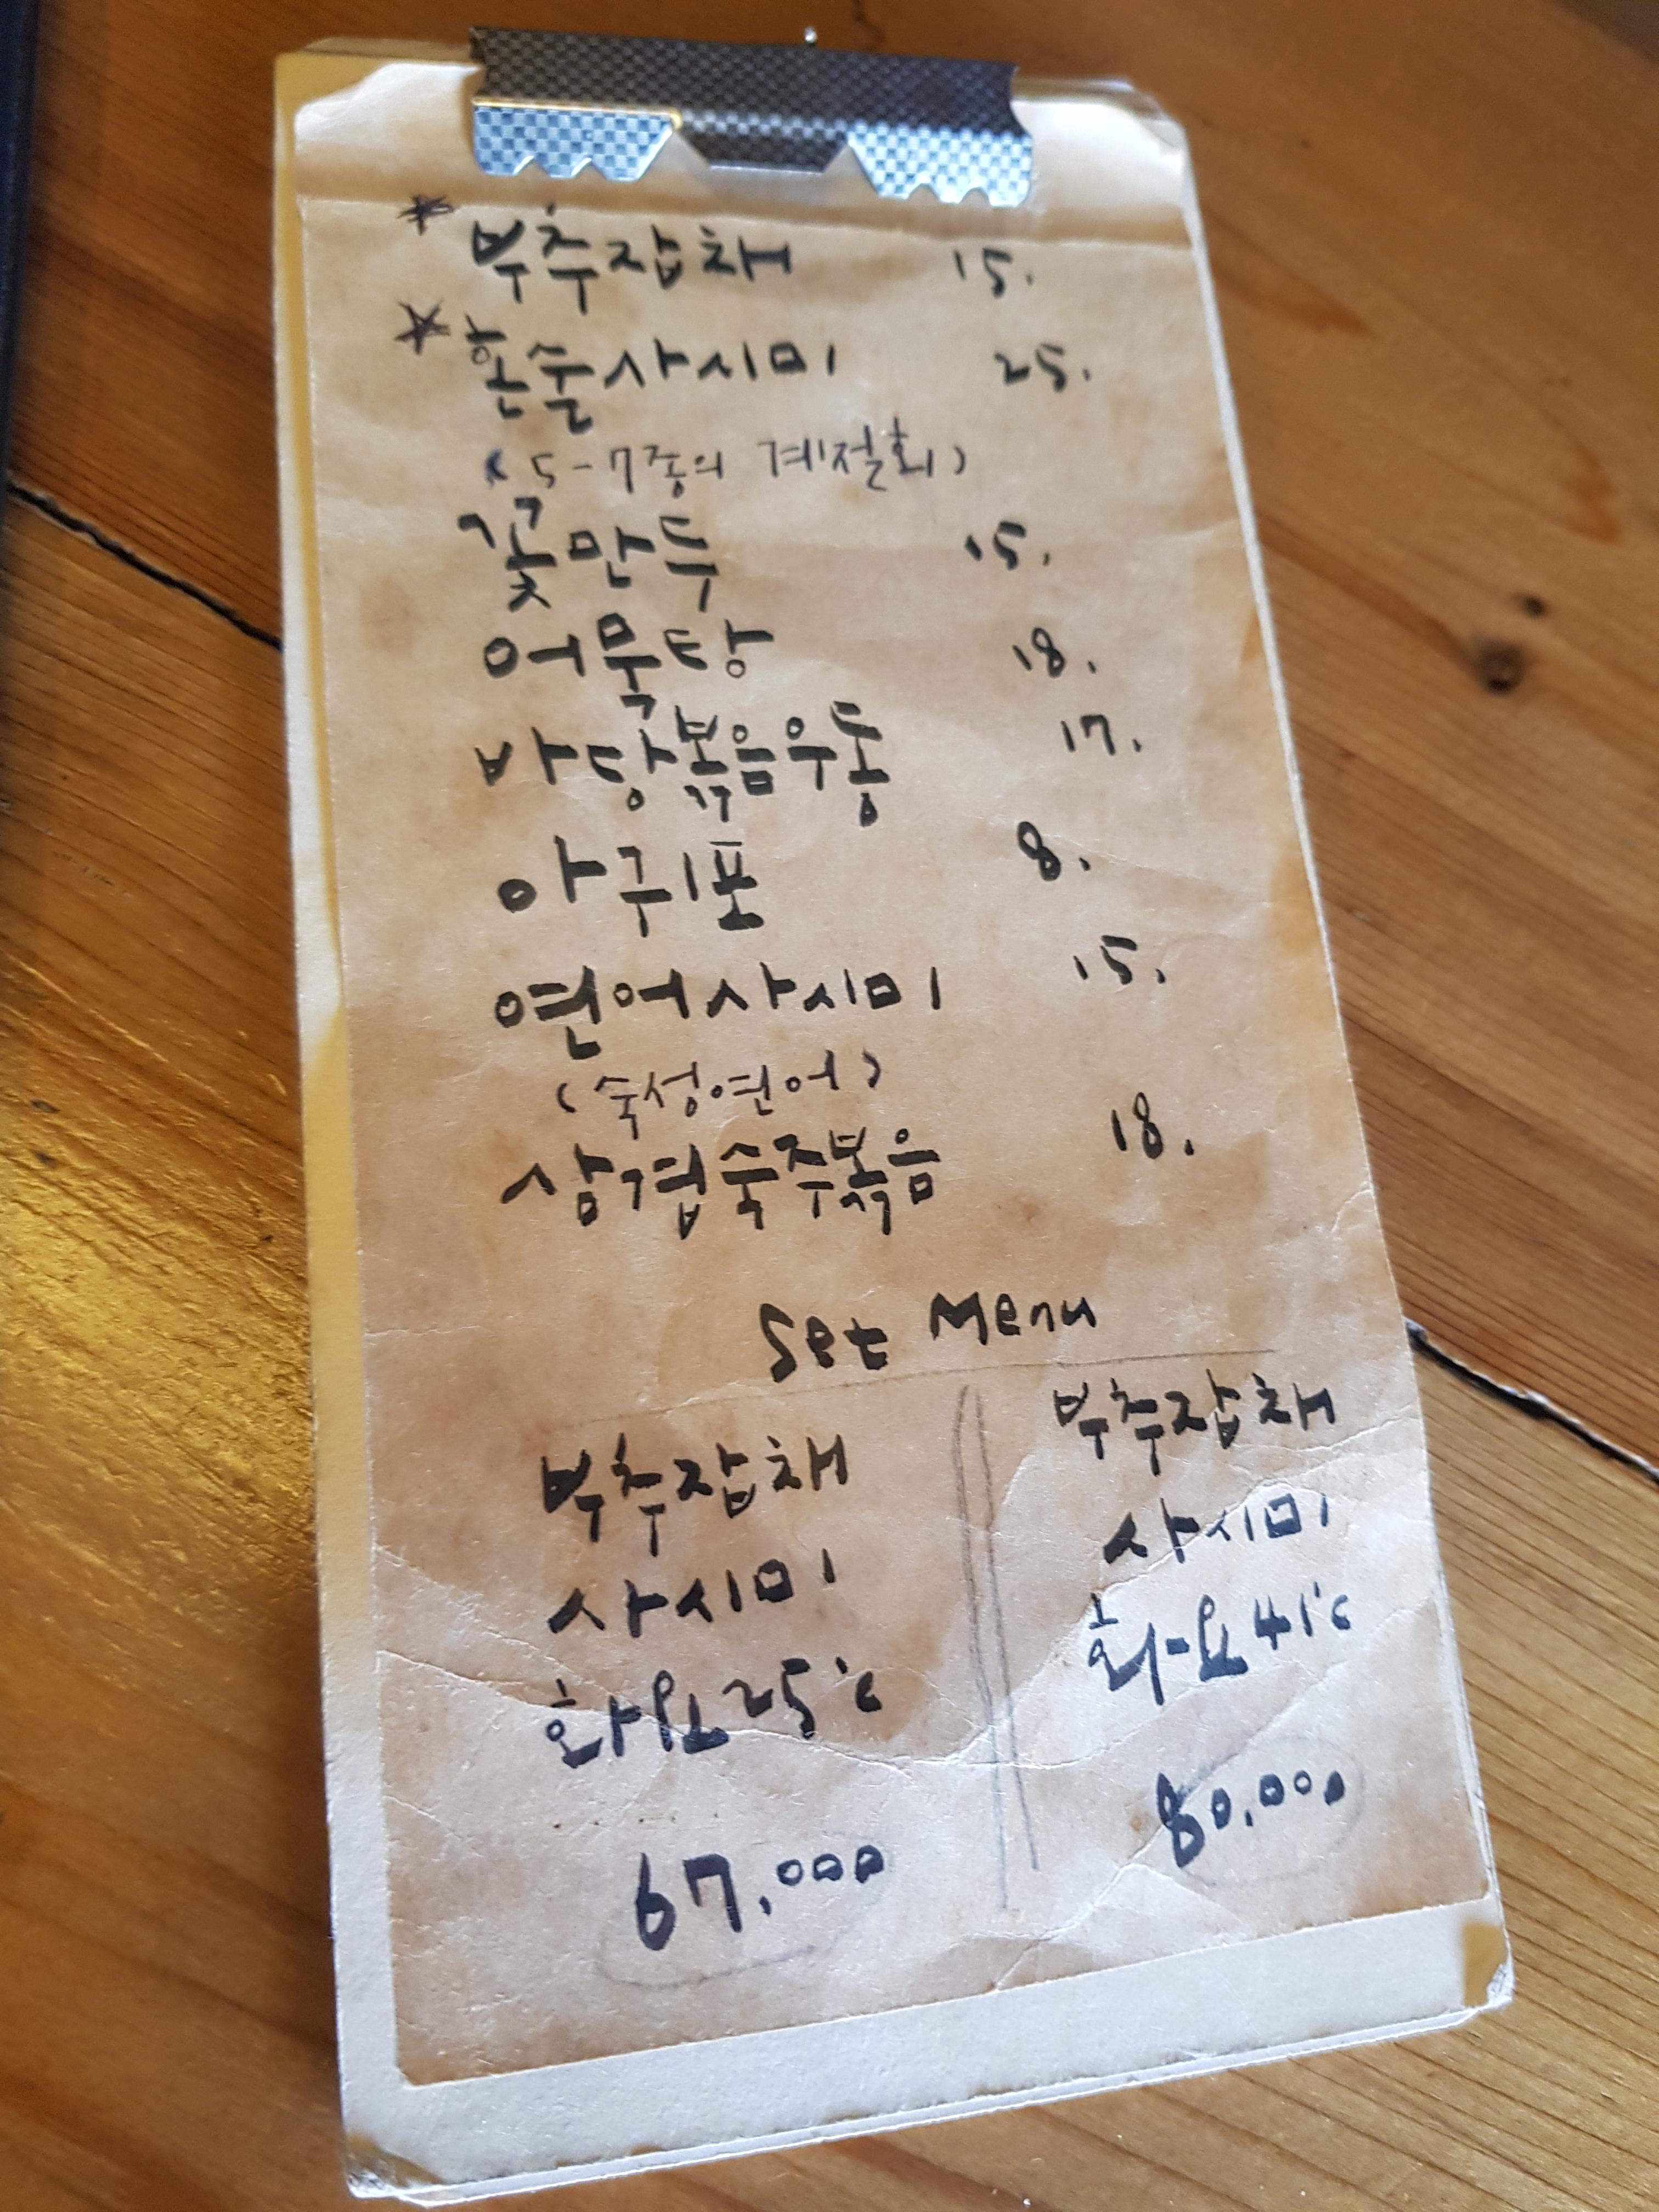 * 부추잡채 15.
* 혼술사시미 25.
(5-7종의 계절회)
꽃만두 15.
어묵탕 18.
바당볶음우동 17.
아귀포 8.
연어사시미 15.
(숙성연어)
삼겹숙주볶음 18.
Set Menu
부추잡채
사시미
화요25℃
67,000
부추잡채
사시미
화요41℃
80,000